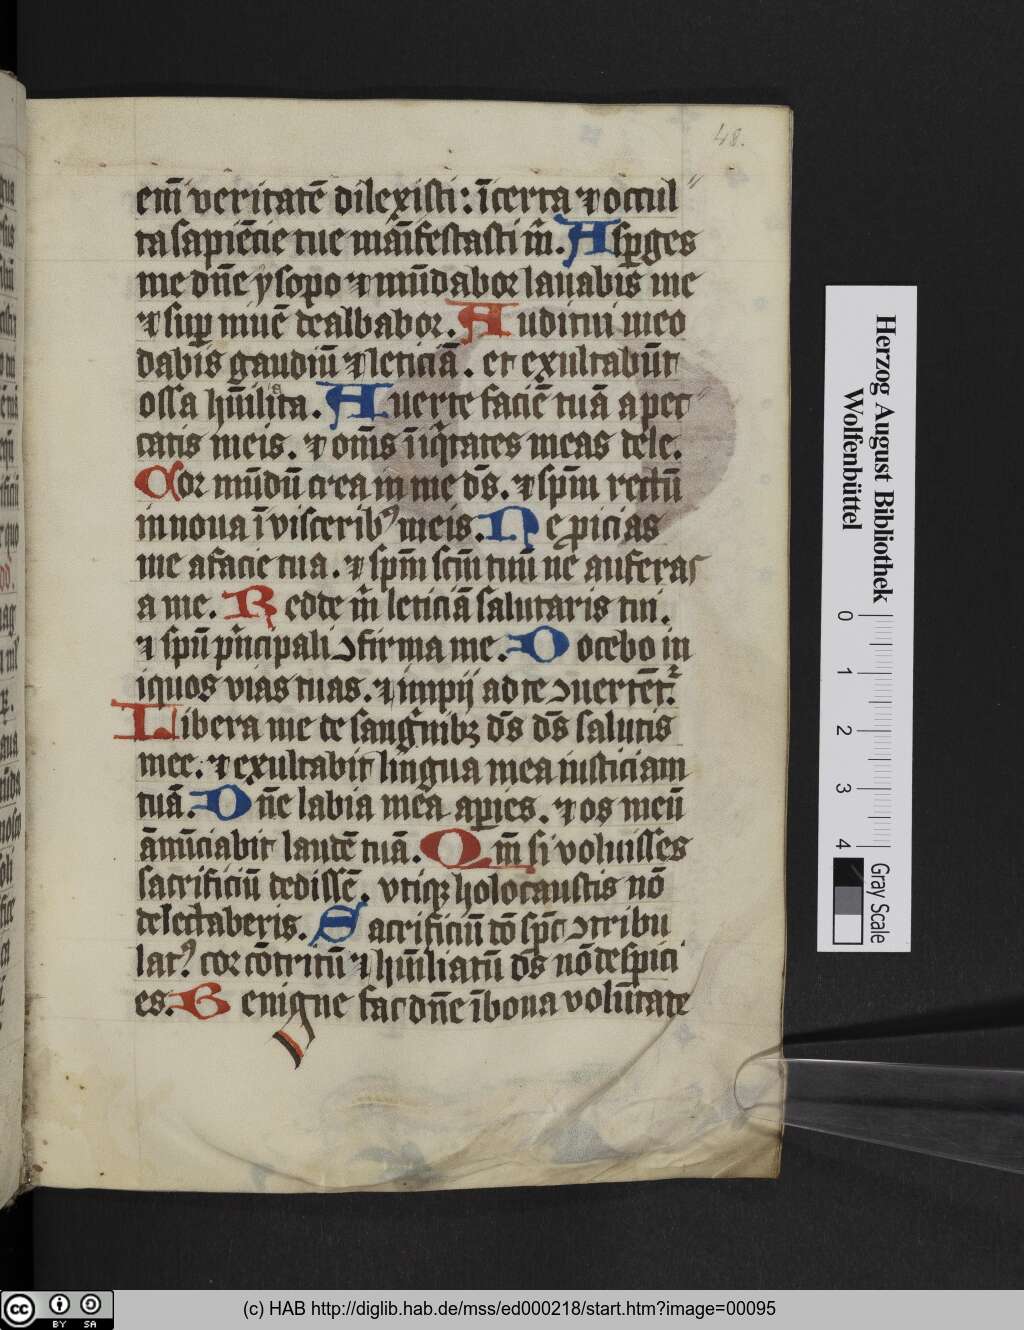 48.
em̄ veritatē dilexisti: īcerta ⁊ occul
ta sapiēcie tue māifestasti m̄. Asꝑges
me dn̄e ysopo ⁊ mūdabor lauabis me
⁊ suꝑ niuē dealbabor. Auditui meo
dabis gaudiū ⁊ leticiā. et exultabūt
ossa hūilita. Auerte faciē tuā a pec
catis meis. ⁊ om̄s īiq̇tates meas dele.
Cor mūdū crea in me ds̄. ⁊ spm̄ rectū
innoua ī visceribꝰ meis. Ne ꝓicias
me a facie tua. ⁊ spm̄ scm̄ tuū ne auferas
a me. Redde m̄ leticiā salutaris tui.
⁊ spū pͥncipali ↄfirma me. Docebo in
iquos vias tuas. ⁊ impij ad te ↄuertēt̄.
Libera me de sangͥnibꝫ ds̄ ds̄ salutis
mee. ⁊ exultabit lingua mea iusticiam
tuā. Dn̄e labia mea aꝑies. ⁊ os meū
ānūciabit laudē tuā. Qm̄ si voluisses
sacrificiū dedissē. vtiqꝫ holocaustis nō
delectaberis. Sacrificiū dō spc̄ ↄtribu
latꝰ cor cōtritū ⁊ hūiliatū ds̄ nō despici
es. Benigne fac dn̄e ī bona volūtate
Herzog August Bibliothek
Wolfenbüttel
0 1 2 3 4
Gray Scale
cc BY SA
(c) HAB http://diglib.hab.de/mss/ed000218/start.htm?image=00095